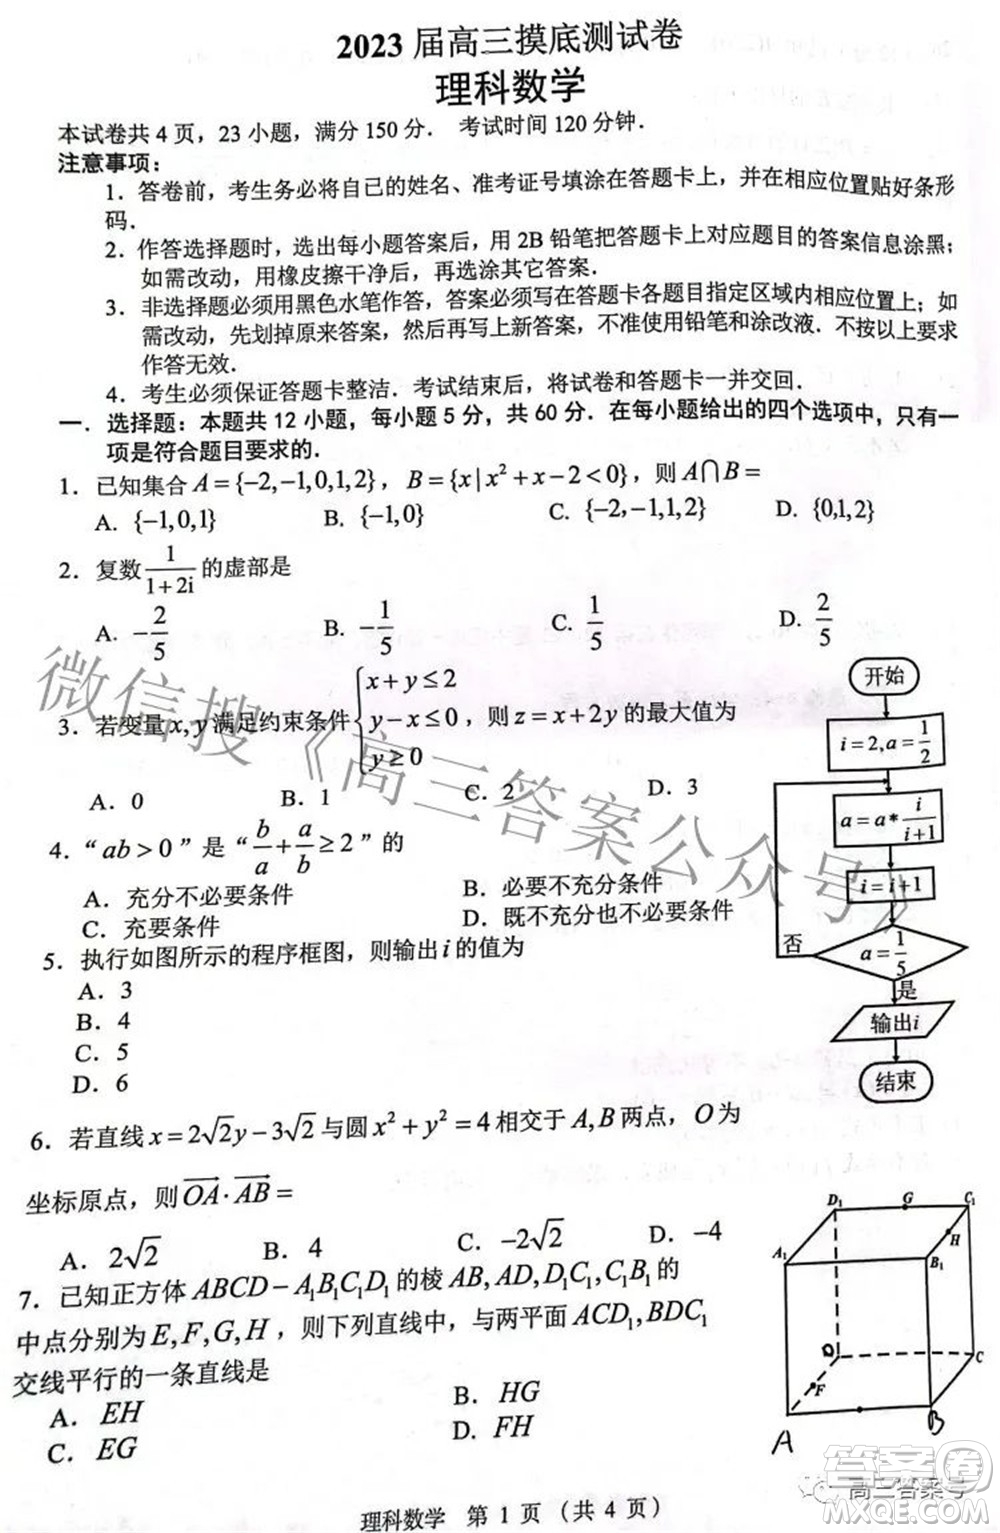 2023届高三摸底测试卷
理科数学
本试卷共4页，23小题，满分150分． 考试时间120分钟．
注意事项：
1．答卷前，考生务必将自己的姓名、准考证号填涂在答题卡上，并在相应位置贴好条形
码．
2．作答选择题时，选出每小题答案后，用2B铅笔把答题卡上对应题目的答案信息涂黑；
如需改动，用橡皮擦干净后，再选涂其它答案．
3．非选择题必须用黑色水笔作答，答案必须写在答题卡各题目指定区域内相应位置上；如
需改动，先划掉原来答案，然后再写上新答案，不准使用铅笔和涂改液．不按以上要求
作答无效．
4．考生必须保证答题卡整洁．考试结束后，将试卷和答题卡一并交回．
一．选择题：本题共12小题，每小题5分，共60分．在每小题给出的四个选项中，只有一
项是符合题目要求的．
1．已知集合A={-2,-1,0,1,2}，B={x|x²+x-2<0}，则A∩B=
A. {-1,0,1} B. {-1,0} C. {-2,-1,1,2} D. {0,1,2}
2．复数1/(1+2i)的虚部是
A. -2/5 B. -1/5 C. 1/5 D. 2/5
3．若变量x,y满足约束条件{x+y≤2 y-x≤0 y≥0，则z=x+2y的最大值为
A．0 B．1 C．2 D．3
4．“ab>0”是“b/a+a/b≥2”的
A．充分不必要条件 B．必要不充分条件
C．充要条件 D．既不充分也不必要条件
5．执行如图所示的程序框图，则输出i的值为
A．3
B．4
C．5
D．6
开始
i=2,a=1/2
a=a*i/(i+1)
i=i+1
否
a=1/5
是
输出i
结束
6．若直线x=2√2y-3√2与圆x²+y²=4相交于A,B两点，O为
坐标原点，则OA·AB=
A．2√2 B．4 C．-2√2 D．-4
7．已知正方体ABCD-A₁B₁C₁D₁的棱AB,AD,D₁C₁,C₁B₁的
中点分别为E,F,G,H，则下列直线中，与两平面ACD₁,BDC₁
交线平行的一条直线是
A．EH B．HG
C．EG D．FH
D₁ G C₁
H
A₁ B₁
D C
F
A B
理科数学 第1页（共4页）
微信搜《高三答案公众号》
高三答案号
答案圈
MXQE.COM